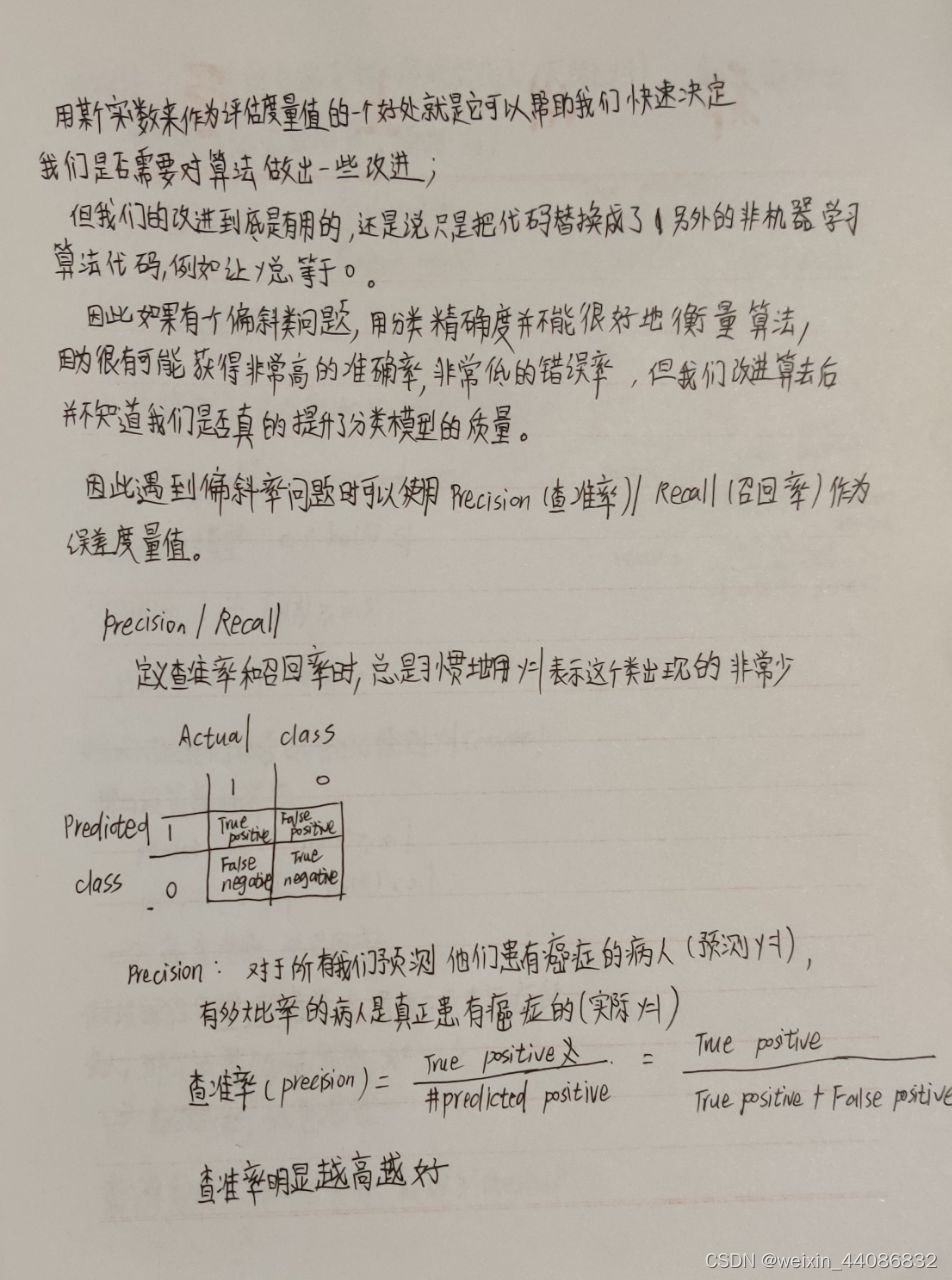 用某个实数来作为评估度量值的一个好处就是它可以帮助我们快速决定
我们是否需要对算法做出一些改进；
但我们的改进到底是有用的，还是说只是把代码替换成了另外的非机器学习
算法代码，例如让y总等于0。
因此如果有个偏斜类问题，用分类精确度并不能很好地衡量算法，
因为很有可能获得非常高的准确率，非常低的错误率，但我们改进算去后
并不知道我们是否真的提升了分类模型的质量。
因此遇到偏斜率问题时可以使用 Precision (查准率)/ Recall (召回率) 作为
误差度量值。
Precision / Recall
定义查准率和召回率时，总是习惯地用y=1表示这个类出现的非常少
Actual class
1 0
Predicted 1 True positive False positive
class 0 False negative True negative
Precision：对于所有我们预测他们患有癌症的病人 (预测y=1)，
有多大比率的病人是真正患有癌症的(实际y=1)
查准率 (precision) = True positive / #predicted positive = True positive / True positive + False positive
查准率明显越高越好
CSDN @weixin_44086832